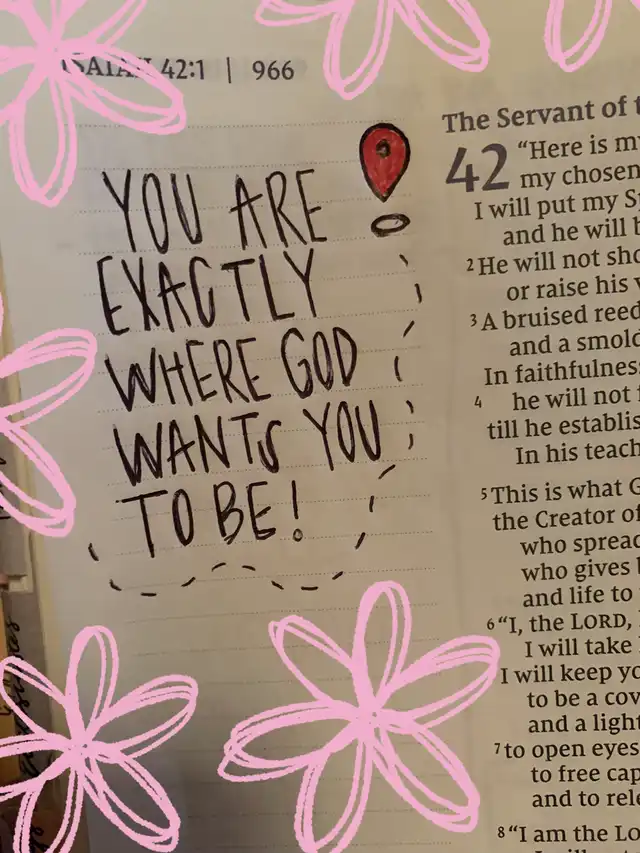 ISAIAH 42:1 | 966
YOU ARE
EXACTLY
WHERE GOD
WANTS YOU
TO BE!
The Servant of
42 "Here is
my chosen
I will put my
and he will
2 He will not
or raise his
3 A bruised reed
and a
In
4 he will not
till he
In his
5 This is what
the Creator of
who
who gives
and life to
6 "I, the LORD,
I will take
I will keep
to be a
and a light
7 to open eyes
to free
and to
8 "I am the